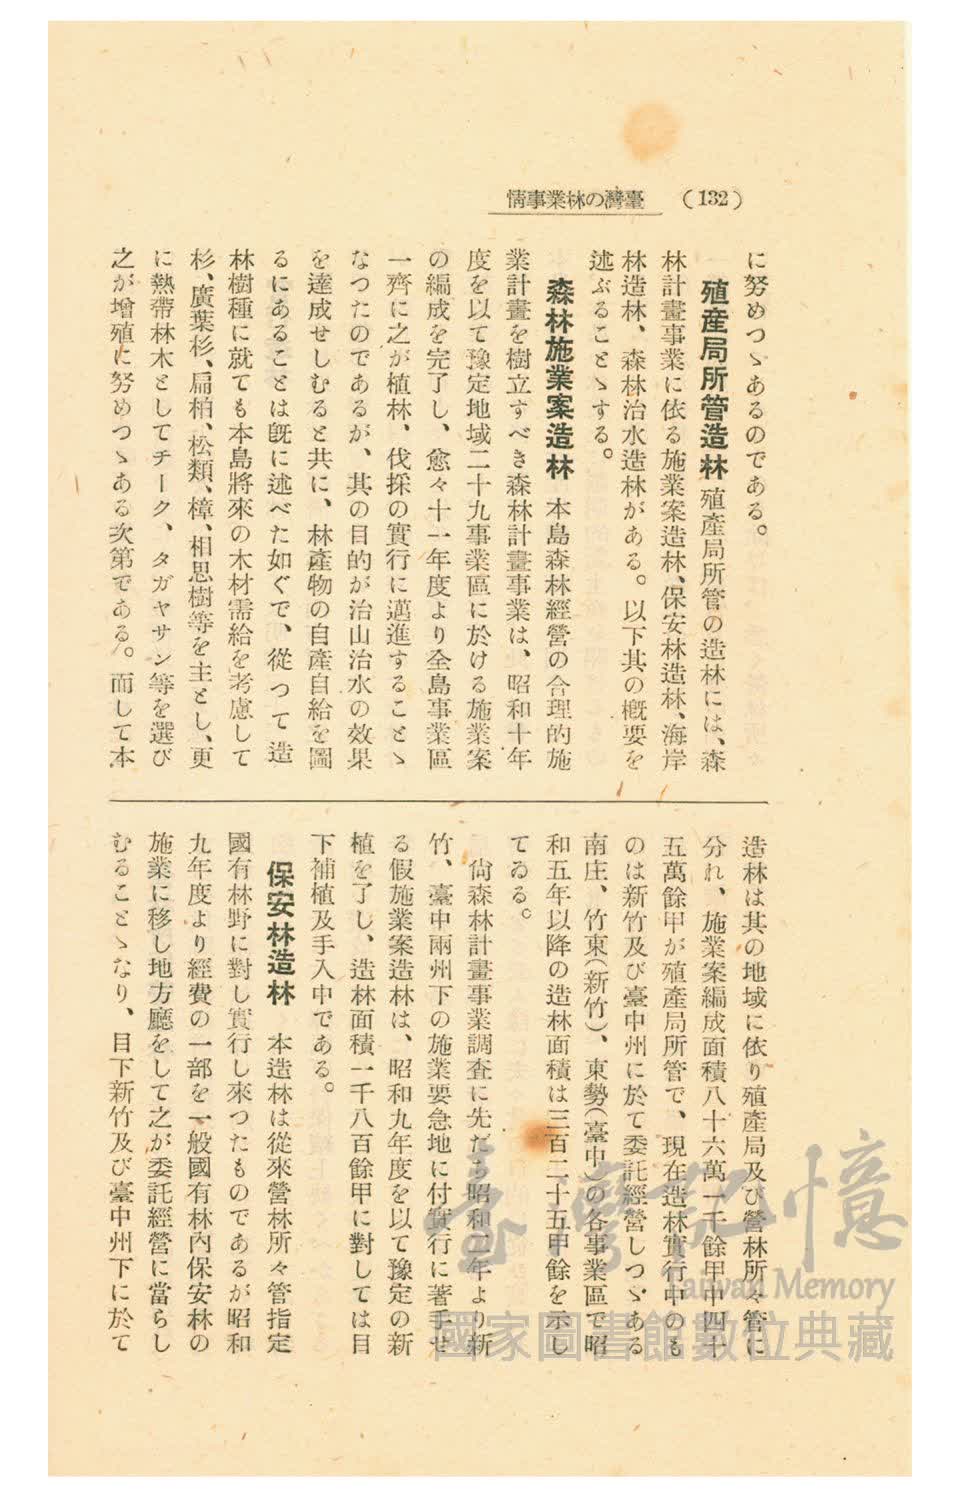 (132)
情事業林の灣臺
に努めつゝあるのである。
殖産局所管造林 殖產局所管の造林には、森
林計畫事業に依る施業案造林、保安林造林、海岸
林造林、森林治水造林がある。以下其の概要を
述ぶることゝする。
森林施業案造林 本島森林經營の合理的施
業計畫を樹立すべき森林計畫事業は、昭和十年
度を以て豫定地域二十九事業區に於ける施業案
の編成を完了し、愈々十一年度より全島事業區
一齊に之が植林、伐採の實行に邁進することゝ
なつたのであるが、其の目的が治山治水の效果
を達成せしむると共に、林產物の自產自給を圖
るにあることは旣に述べた如ぐで、從つて造
林樹種に就ても本島將來の木材需給を考慮して
杉、廣葉杉、扁柏、松類、樟、相思樹等を主とし、更
に熱帶林木としてチーク、タガヤサン等を選び
之が增殖に努めつゝある次第である。而して本
造林は其の地域に依り殖產局及び營林所々管に
分れ、施業案編成面積八十六萬一千餘甲中四十
五萬餘甲が殖產局所管で、現在造林實行中のも
のは新竹及び臺中州に於て委託經營しつゞある
南庄、竹東(新竹)、東勢(臺中)の各事業區で昭
和五年以降の造林面積は三百二十五甲餘を示し
てゐる。
尙森林計畫事業調査に先だち昭和二年より新
竹、臺中兩州下の施業要急地に付實行に著手せ
る假施業案造林は、昭和九年度を以て豫定の新
植を了し、造林面積一千八百餘甲に對しては目
下補植及手入中である。
保安林造林 本造林は從來營林所々管指定
國有林野に對し實行し來つたものであるが昭和
九年度より經費の一部を一般國有林內保安林の
施業に移し地方廳をして之が委託經營に當らし
むることゝなり、目下新竹及び臺中州下に於て
臺灣記憶
Taiwan Memory
國家圖書館數位典藏